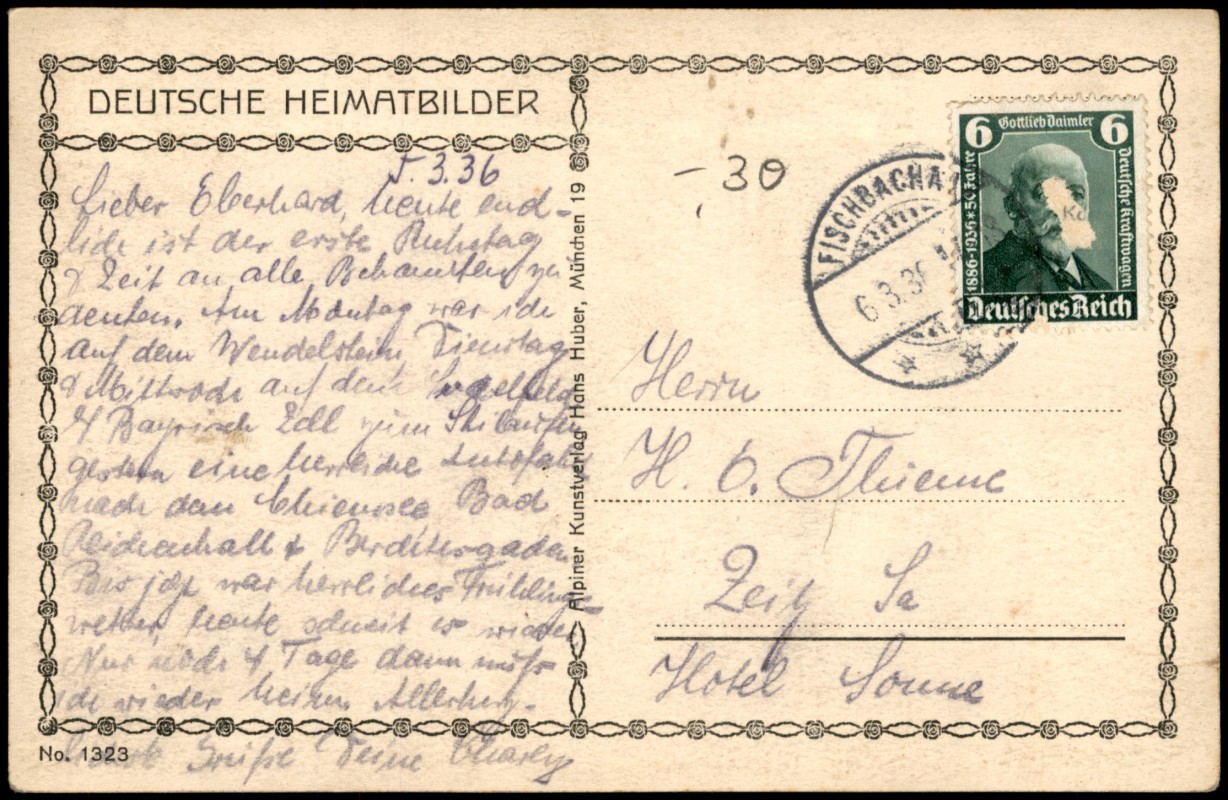 DEUTSCHE HEIMATBILDER
5.3.36
Lieber Eberhard, heute end-
lich ist der erste Ruhetag
& Zeit an alle Bekannten zu
denken. Am Montag war ich
auf dem Wendelstein, Dienstag
& Mittwoch auf dem
Bayrisch Zell zum
gestern eine herrliche Autofahrt
nach dem Chiemsee Bad
Reichenhall & Berchtesgaden
Bis jetzt war herrliches Frühlings-
wetter, heute schneit es wieder
Nur noch 4 Tage dann muß
ich wieder heim. Allerherz-
Grüße Deine Charly
No. 1323
Alpiner Kunstverlag Hans Huber, München 19
-30
FISCHBACHA
6.3.36
6 Gottlieb Daimler 6
1886-1936 * 50 Jahre
Deutsche Kraftwagen
Deutsches Reich
Herrn
H. O. Thieme
Zeitz Sa
Hotel Sonne